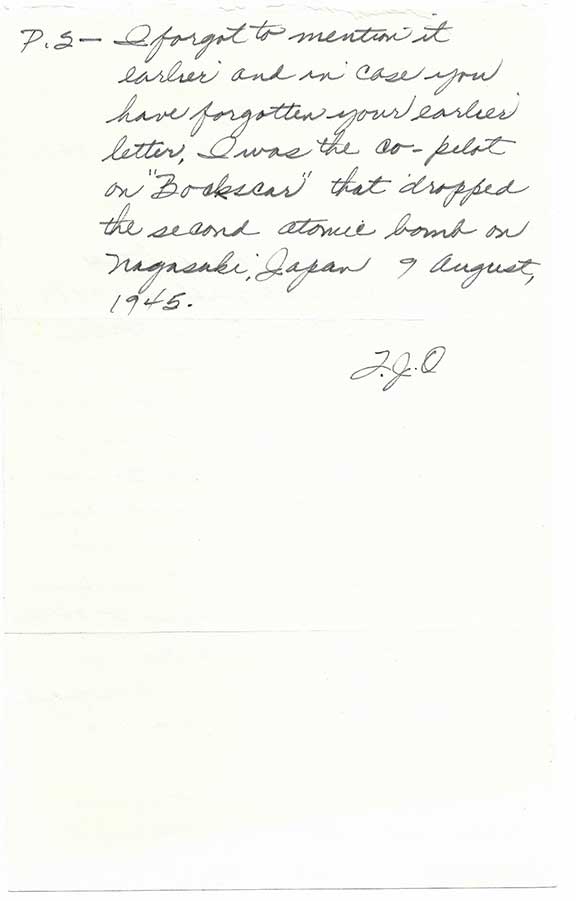 P.S— I forgot to mention it
earlier and in case you
have forgotten your earlier
letter, I was the co-pilot
on "Bockscar" that dropped
the second atomic bomb on
Nagasaki, Japan 9 August,
1945.
F.J.O